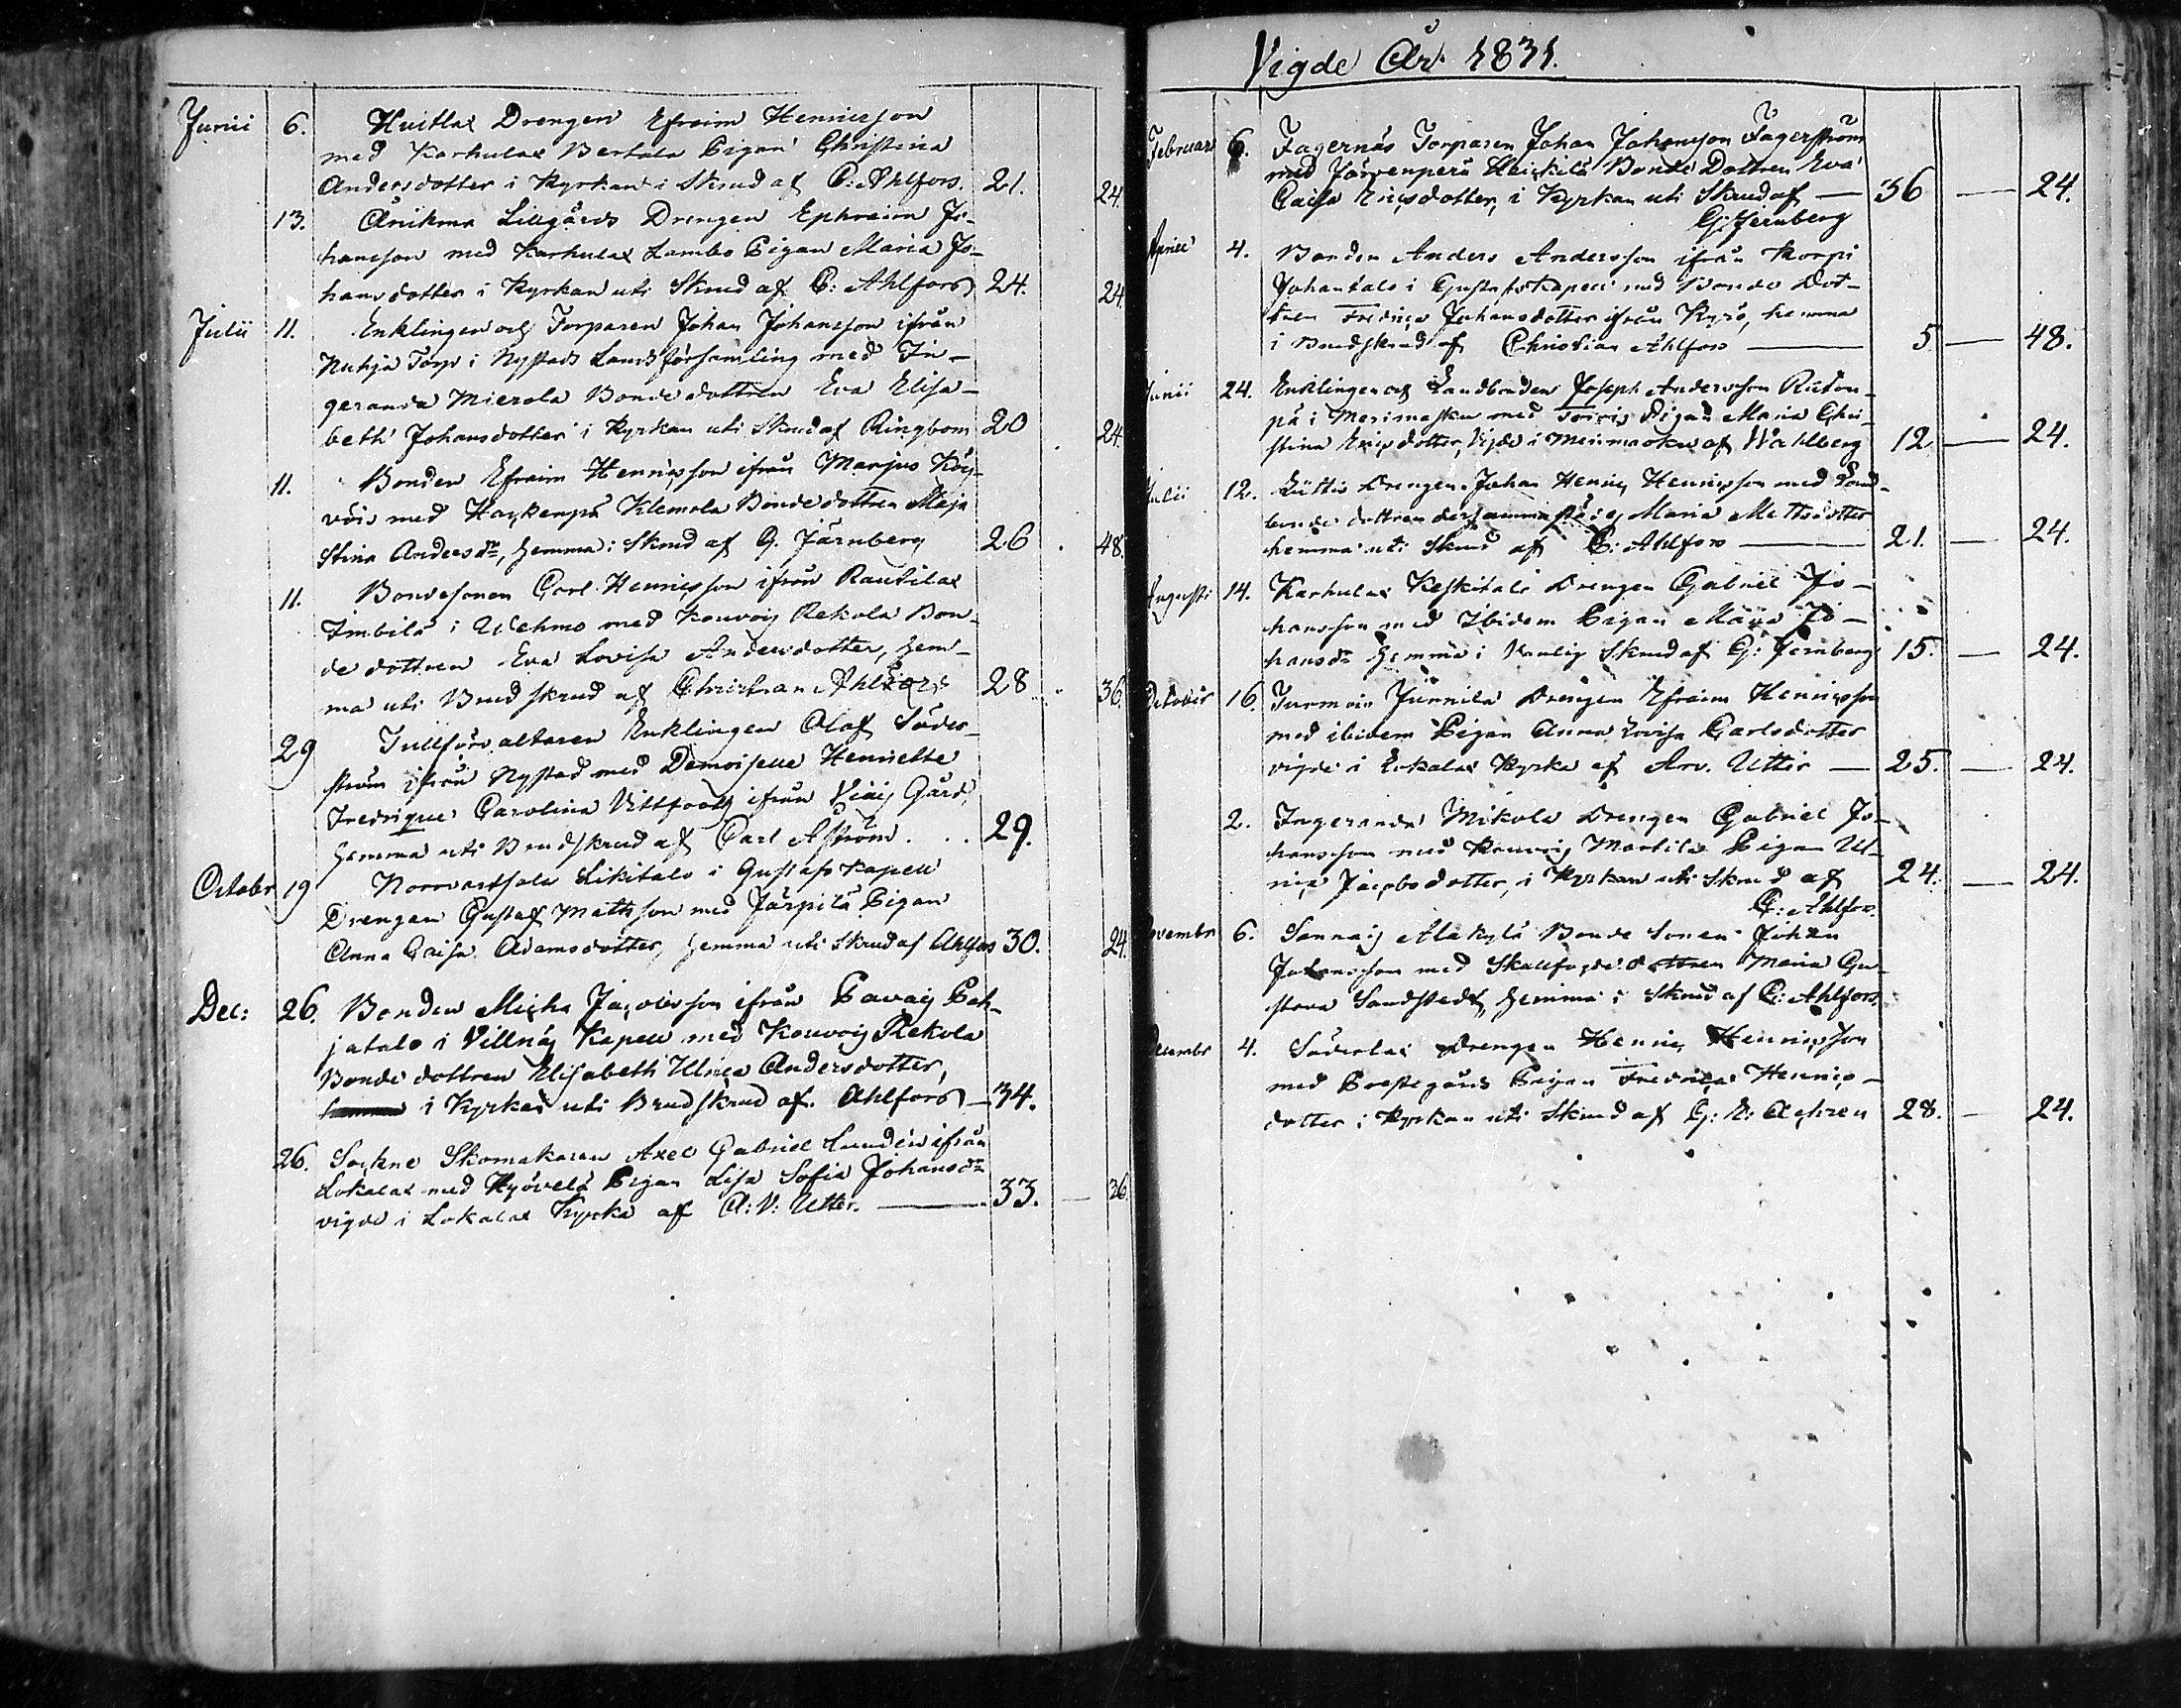 Junii 6. Huitlax Drengen Efraim Henricsson
med Karhulax Bertala Pigan Christina
Andersdotter i Kyrkan i Skrud af C: Ahlfors. 21. 24
13. Anikma Lillgårds Drengen Ephraim Jo-
hansson med Karhulax Lambo Pigan Maria Jo-
hansdotter i Kyrkan uti Skrud af C: Ahlfors 24. 24
Julii 11. Enklingen och Torparen Johan Johansson ifrån
Nuhja Torp i Nystads Landsförsamling med In-
geranda Mierola Bondedottren Eva Elisa-
beth Johansdotter i Kyrkan uti Skrud af Ringbom 20 24.
11. Bonden Efraim Henricsson ifrån Marjus
med Klemola Bondedottren Maja
Stina Andersdr, hemma i Skrud af G. Järnberg 26 48.
11. Bondesonen Carl Henricsson ifrån Rautila
Imbilä i Wehmo med Kouvoig Rekola Bon-
de dottren Eva Lovisa Andersdotter, hem-
ma uti Brudskrud af Christian Ahlfors 28 36
29 Tullförvaltaren Enklingen Olof Söder-
ström ifrån Nystad med Demoiselle Henriette
Fredrique Carolina Vittfooth ifrån Viais Gård,
hemma uti Brudskrud af Carl Aström . . 29.
Octobr 19 Likitalo i Gustafs Kapell
Drengen Gustaf Mathsson med Järpilä Pigan
Anna Caisa Adamsdotter, hemma uti Skrud af Ahlfors 30. 24.
Dec: 26. Bonden Micha Jacobsson ifrån Pah-
jatalo i Villnäs Kapell med Kouvoig Rekola
Bonde dottren Elisabeth Ulrica Andersdotter,
i Kyrkan uti Brudskrud af Ahlfors — 34.
26. Sockne Skomakaren Axel Gabriel Lundén ifrån
Lokalax med Hyövelä Pigan Lisa Sofia Johansdr
vigde i Lokalax Kyrka af A: V: Utter. — 33. — 36
Vigde År 1831.
Februari 6. Fagernäs Torparen Johan Johansson Fagerström
med Järvenperä Heickilä Bonde Dottren Eva
Caisa Ericsdotter, i Kyrkan uti Skrud af — 36 — 24.
G: Jernberg
Aprill 4. Bonden Anders Andersson ifrån Korpi
Juhantalo i Gustafs Kapell med Bonde Dot-
tren Fredrica Johansdotter ifrån Kyrö, hemma
i Brudskrud af Christian Ahlfors — 5 — 48.
Junii 24. Enklingen och Landbonden Joseph Andersson
på i Merimasku med Pigan Maria Chri-
stina Ericsdotter, vigde i Merimasku af Wahlberg 12 — 24.
Julii 12. Drengen Johan Henric Henricsson med Land-
bonde dottren dersammastädes Maria Mattsdotter
hemma uti Skrud af C: Ahlfors — 21. — 24.
Augusti 14. Karhulax Keskitalo Drengen Gabriel Jo-
hansson med Ibidem Pigan Maria Jo-
hansdr hemma i Vanlig Skrud af G: Jernberg 15. — 24.
October 16. Jurmois Jürnila Drengen Efraim Henricsson
med ibidem Pigan Anna Lovisa Carlsdotter
vigde i Lokalax Kyrka af Arv. Utter — 25. — 24.
2. Ingeranda Mikola Drengen Gabriel Jo-
hansson med Kouvoig Martila Pigan Ul-
rica Jacobsdotter, i Kyrkan uti Skrud af 24. — 24.
C: Ahlfors.
Novembr 6. Sannais Alakylä Bonde Sonen Johan
Johansson med Skallfogde dottren Maria Gu-
stava Sandstedt, hemma i Skrud af C: Ahlfors.
Decembr 4. Söderlax Drengen Henric Henricsson
med Prestegårds Pigan Fredrica Henrics-
dotter i Kyrkan uti Skrud af 28. — 24.